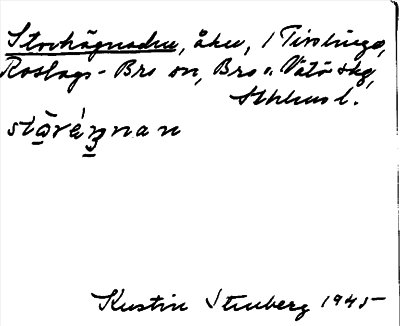 Storhägnaden, åker, / Tirslinge,
Roslags-Bro sn, Bro o. Vätö skg,
Sthlms l.
Kerstin Stenberg 1945